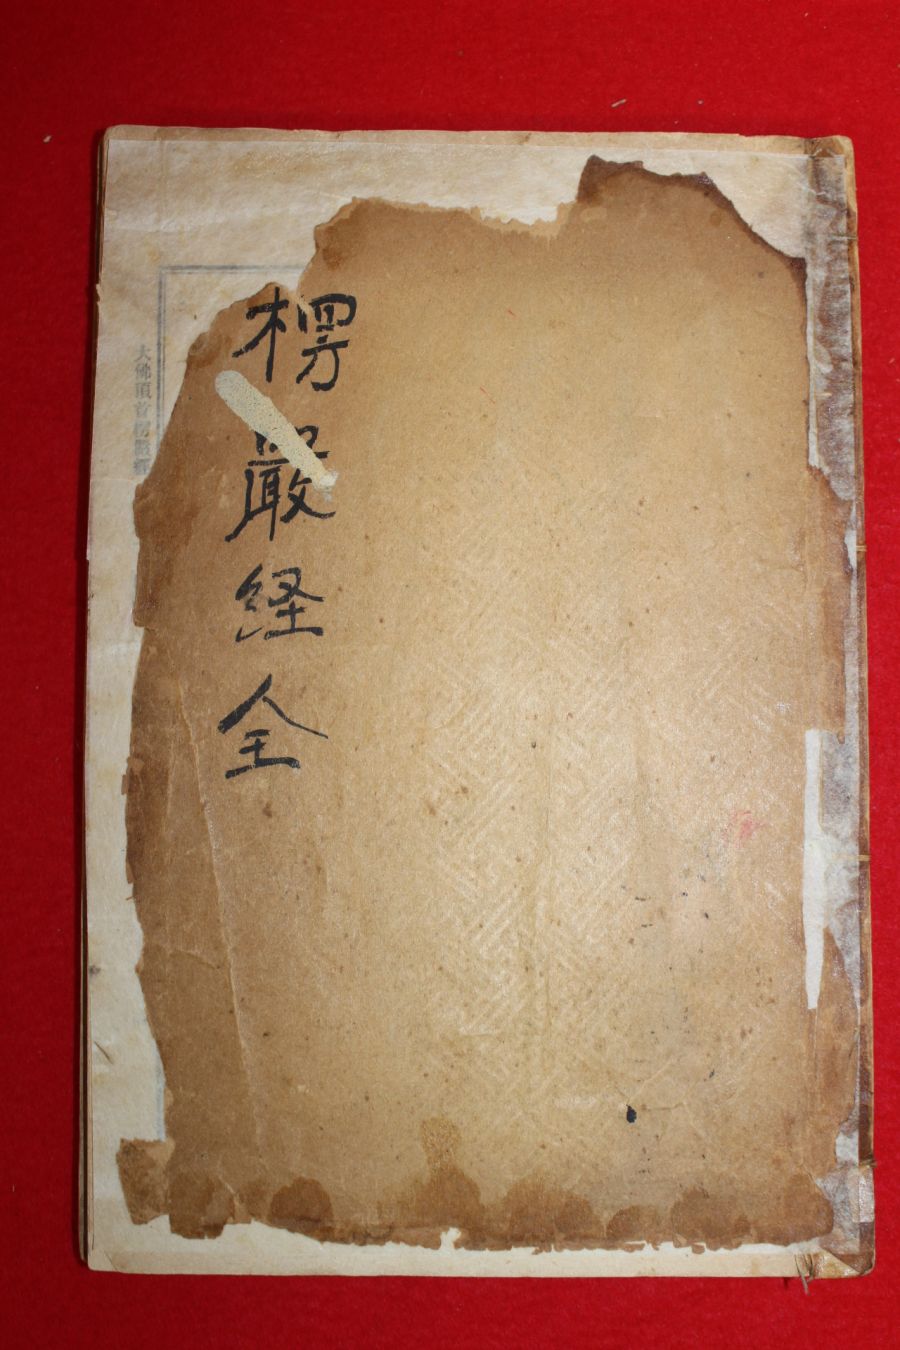 楞嚴経全
大佛頂首楞嚴經